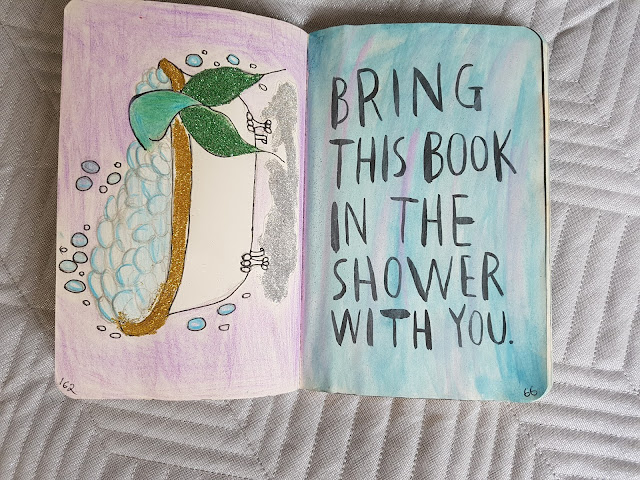 162
BRING
THIS BOOK
IN THE
SHOWER
WITH YOU.
66